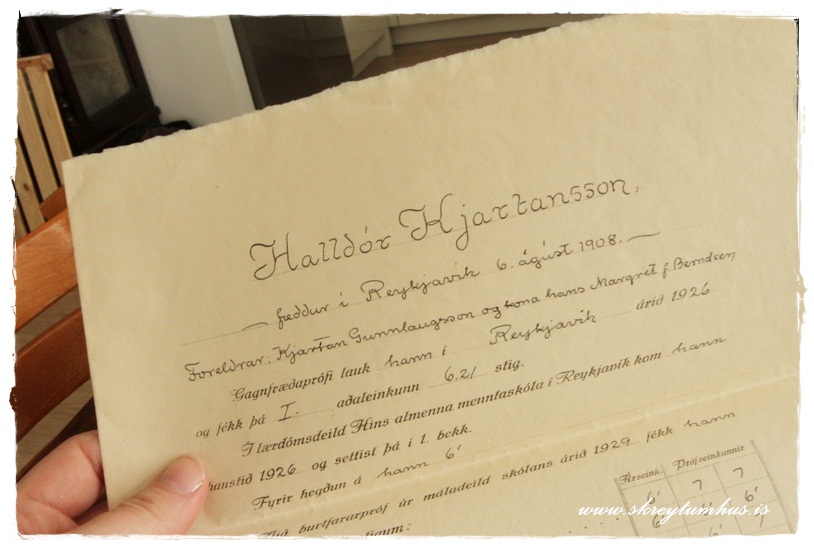 Halldór Kjartansson,
fæddur í Reykjavík 6. ágúst 1908.
Foreldrar: Kjartan Gunnlaugsson og kona hans Margrét f. Berndsen
Gagnfræðaprófi lauk hann í Reykjavík árið 1926
og fékk þá I. aðaleinkunn 6.21 stig.
Í lærdómsdeild Hins almenna menntaskóla í Reykjavík kom hann
haustið 1926 og settist þá í 1. bekk.
Fyrir hegðun á hann 6'
Við burtfararpróf úr máladeild skólans árið 1929 fékk hann
Árseink. Prófseinkunnir
6' 7 7
6' 6'
6' 7
www.skreytumhus.is